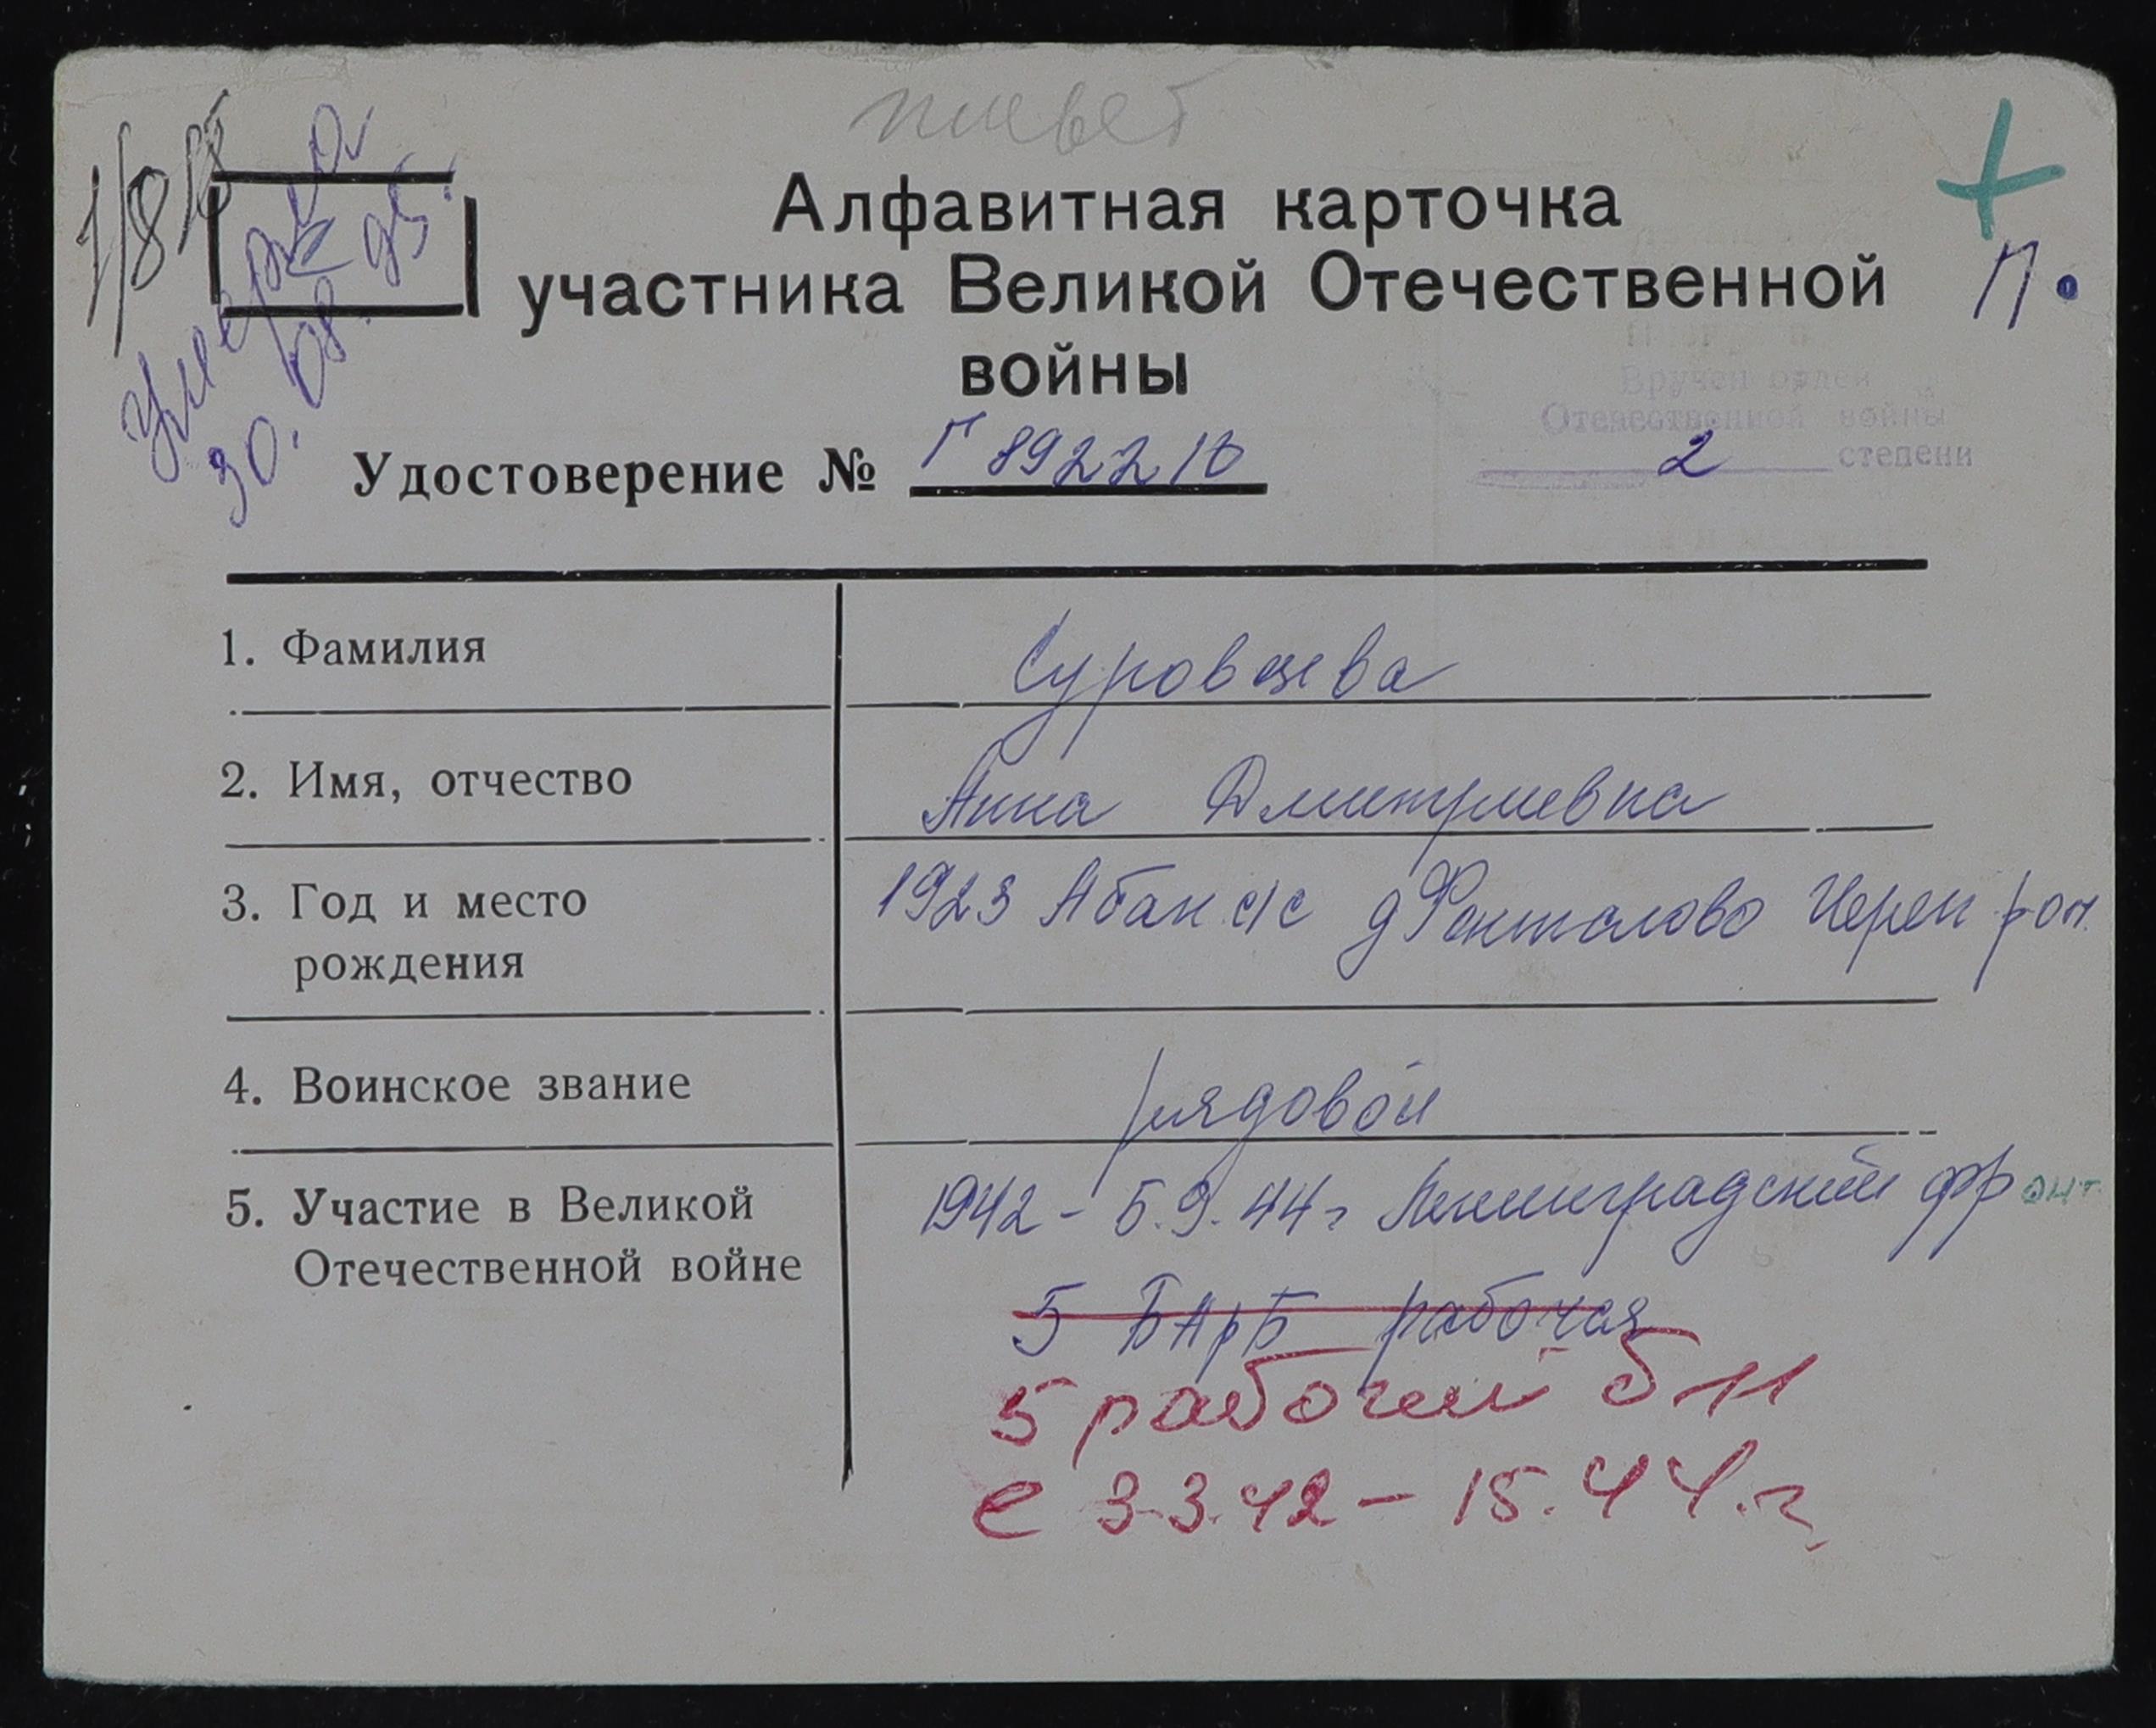 1/8 К
умерла
30. 08. 95.
+
П.
Алфавитная карточка
участника Великой Отечественной
войны
Вручен орден
Отечественной войны
2 степени
Удостоверение № Г 892210
1. Фамилия Суровцева
2. Имя, отчество Анна Дмитриевна
3. Год и место 1923 Абак с/с д Фонталово Череп рон.
рождения
4. Воинское звание рядовой
5. Участие в Великой 1942 - 5.9.44г Ленинградский фронт
Отечественной войне
5 БАрБ рабочая
5 рабочий б
с 3.3.42 - 15.44.г.